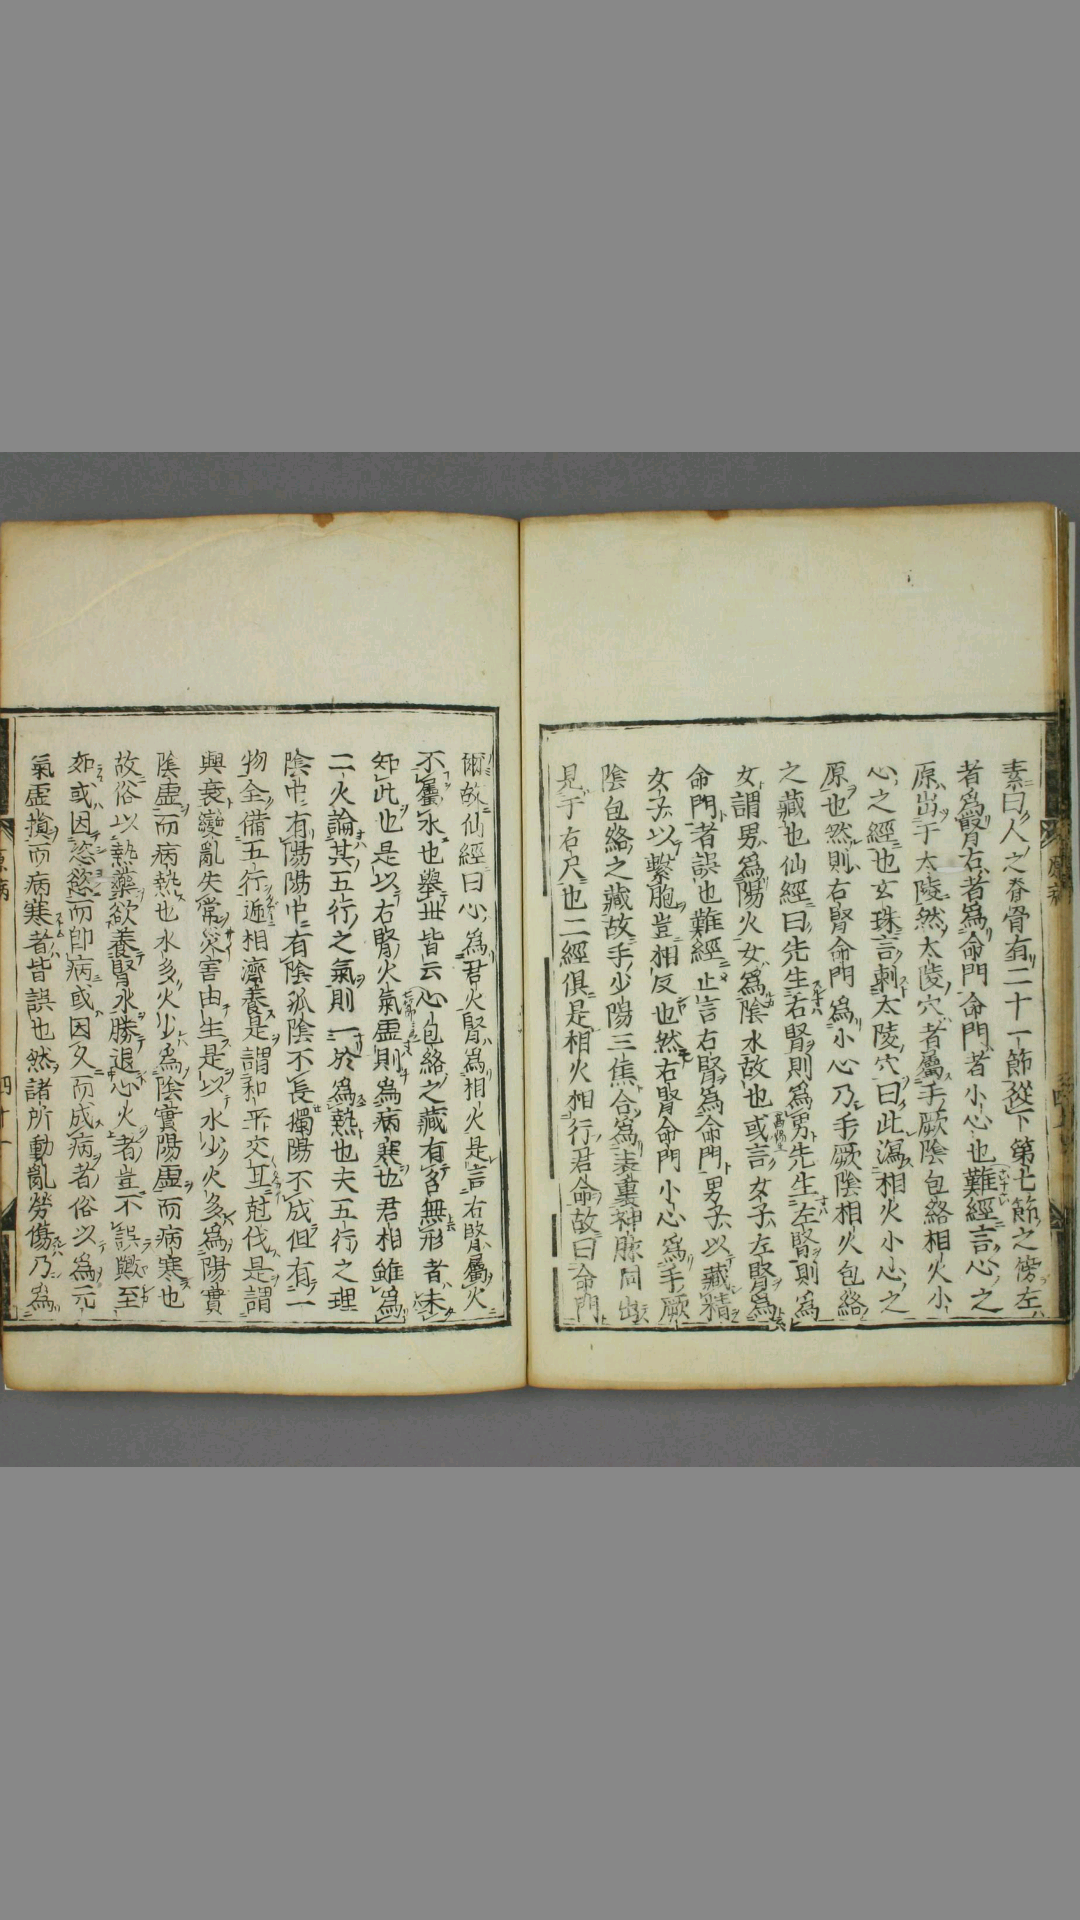 素曰人之脊骨有二十一節從下第七節之傍左
者爲腎右者爲命門命門者小心也難經言心之
原出于太陵然太陵穴者屬手厥陰包絡相火小
心之經也玄珠言刺太陵穴曰此瀉相火小心之
原也然則右腎命門爲小心乃手厥陰相火包絡
之藏也仙經曰先生右腎則爲男先生左腎則爲
女謂男爲陽火女爲陰水故也或言女子左腎爲
命門者誤也難經止言右腎爲命門男子以藏精
女子以繫胞豈相反也然右腎命門小心爲手厥
陰包絡之藏故手少陽三焦合爲表裏神脉同出
見于右尺也二經俱是相火相行君命故曰命門
爾故仙經曰心爲君火腎爲相火是言右腎屬火
不屬水也擧世皆云心包絡之藏有名無形者未
知此也是以右腎火氣虛則爲病寒也君相雖爲
二火論其五行之氣則一於爲熱也夫五行之理
陰中有陽陽中有陰孤陰不長獨陽不成但有一
物全備五行遞相濟養是謂和平交互尅伐是謂
興衰變亂失常災害由生是以水少火多爲陽實
陰虛而病熱也水多火少爲陰實陽虛而病寒也
故俗以熱藥欲養腎水勝退心火者豈不誤歟至
如或因恣慾而卽病或因久而成病者俗以爲元
氣虛損而病寒者皆誤也然諸所動亂勞傷乃爲
原病
四十一